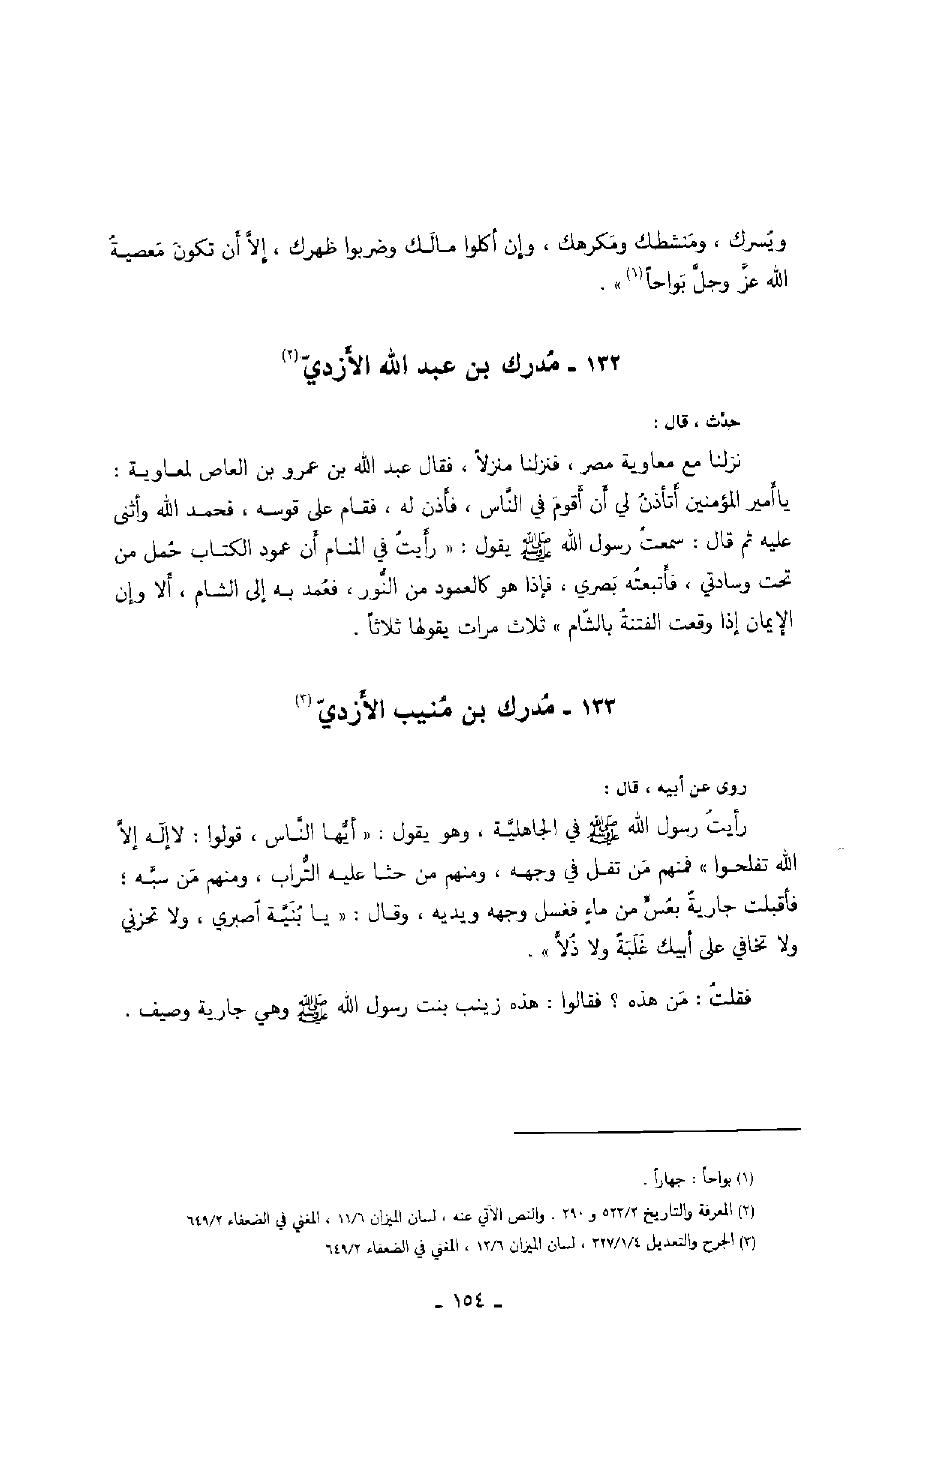 ويُسرك ، ومَنشطك ومَكرهك ، وإن أكلوا مالَك وضربوا ظهرك ، إلاَّ أن تكونَ مَعصيةُ
الله عزَّ وجلَّ بَواحاً(١)» .
١٣٢ ـ مُدرك بن عبد الله الأَزديّ(٢)
حدَّث ، قال :
نزلنا مع معاوية مصر ، فنزلنا منزلاً ، فقال عبد الله بن عمرو بن العاص لمعاوية :
ياأَمير المؤمنين أَتأذنُ لي أن أَقومَ في النَّاس ، فأَذن له ، فقام على قوسه ، فحمد الله وأثنى
عليه ثم قال : سمعتُ رسول الله ﷺ يقول : « رأَيتُ في المنام أن عمود الكتاب حُمل من
تحت وسادتي ، فأَتبعتُه بَصري ، فإذا هو كالعمود من النُّور ، فعُمد به إلى الشام ، ألا وإن
الإيمان إذا وقعت الفتنةُ بالشَّام » ثلاث مرات يقولها ثلاثاً .
١٣٣ ـ مُدرك بن مُنيب الأَزديّ(٣)
روى عن أبيه ، قال :
رأَيتُ رسول الله ﷺ في الجاهليَّة ، وهو يقول : « أَيُّها النَّاس ، قولوا : لاإلَه إلاَّ
الله تفلحوا » فمنهم مَن تفل في وجهه ، ومنهم من حثا عليه التُّراب ، ومنهم مَن سبَّه ؛
فأَقبلت جاريةٌ بعُسٍّ من ماءٍ فغسل وجهه ويديه ، وقال : « يا بُنَيَّة آصبري ، ولا تحزني
ولا تخافي على أبيك غَلَبَةً ولا ذُلاًّ » .
فقلتُ : مَن هذه ؟ فقالوا : هذه زينب بنت رسول الله ﷺ وهي جارية وصيف .
(١) بواحاً : جهاراً .
(٢) المعرفة والتاريخ ٥٢٣/٢ و ٢٩٠ . والنص الآتي عنه ، لسان الميزان ١١/٦ ، المغني في الضعفاء ٦٤٩/٢
(٣) الجرح والتعديل ٣٢٧/١/٤ ، لسان الميزان ١٢/٦ ، المغني في الضعفاء ٦٤٩/٢
ـ ١٥٤ ـ